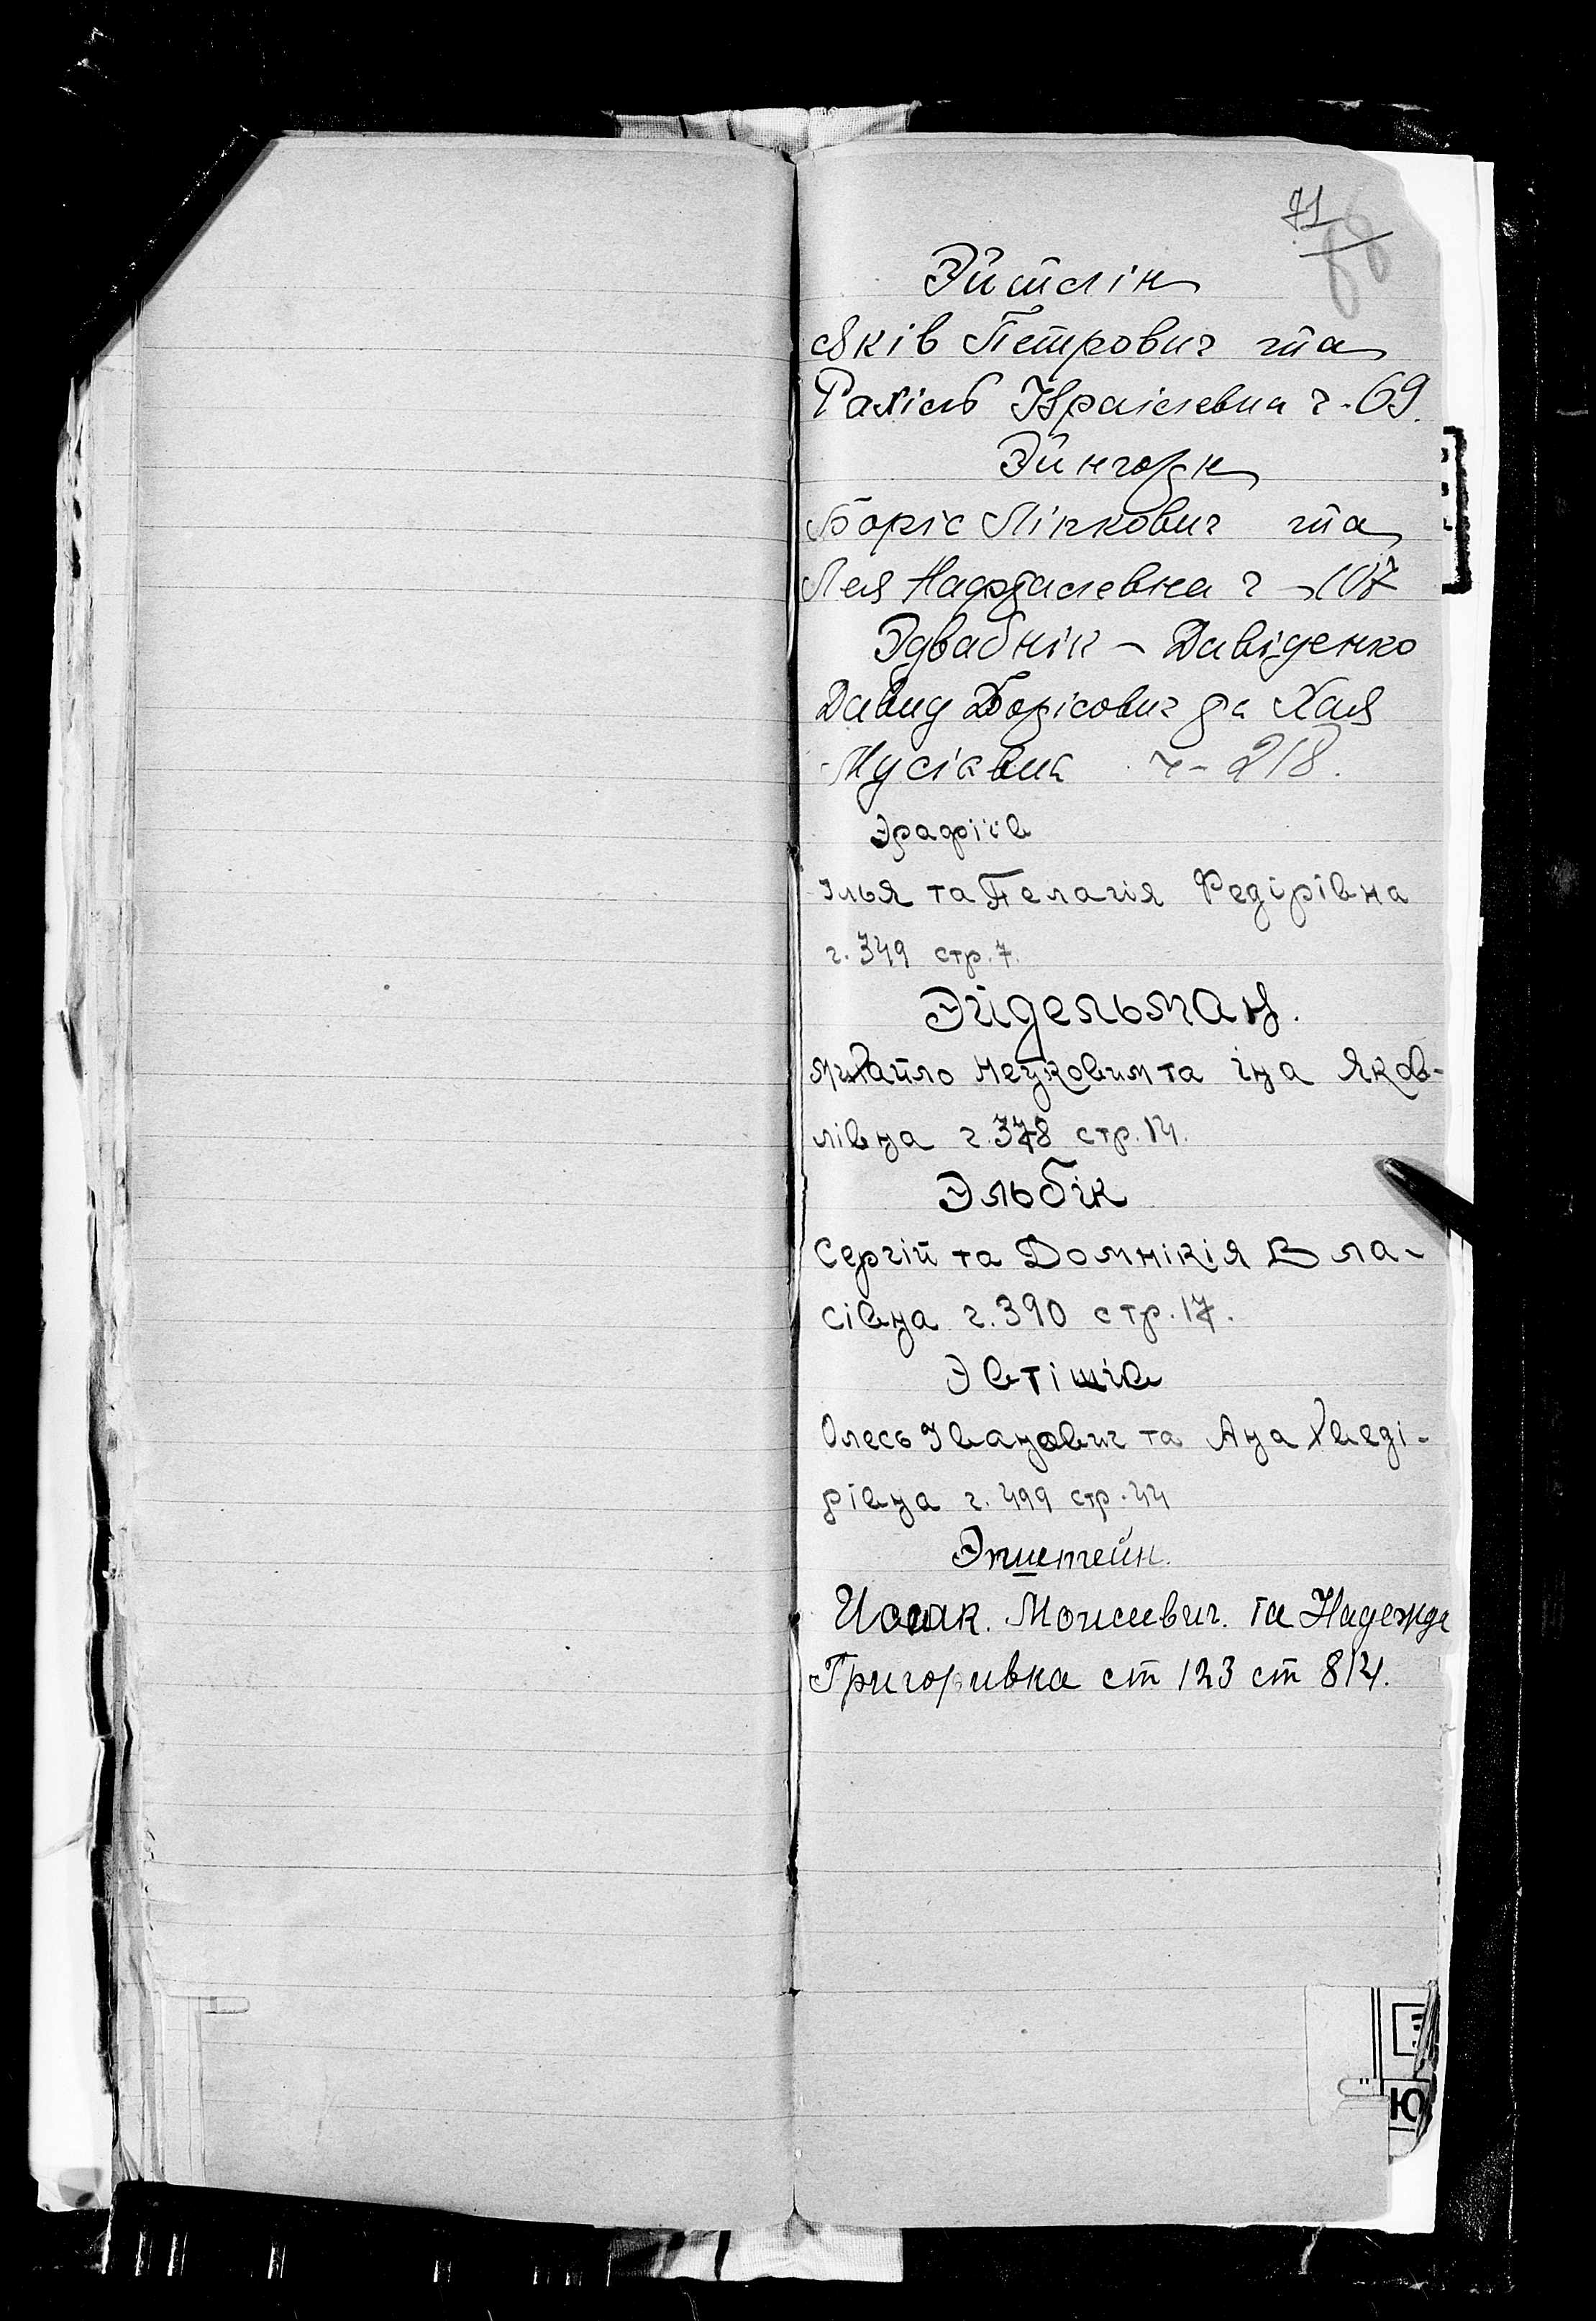 71
68
Эйтлін
Яків Петрович та
Рахіль Ізраілевна г. 69.
Эйнгорн
Боріс Пінкович та
Лея Нафталевна г - 107
Эдвабнік - Давіденко
Давид Борісович та Хая
Мусіивна г - 218.
Эрафіїв
Ілья та Пелагія Федірівна
г. 349 стр. 7.
Эйдельман.
Михайло та Іна Яков-
лівна г. 378 стр. 14.
Эльбік
Сергій та Домнікія Вла-
сівна г. 390 стр. 17.
Эвтішів
Олесь Іванович та Ана Хведі-
рівна г. 499 стр. 44
Эпштейн.
Исаак. Моисеевич. та Надежда
Григоривка ст 123 ст 814.
Ю